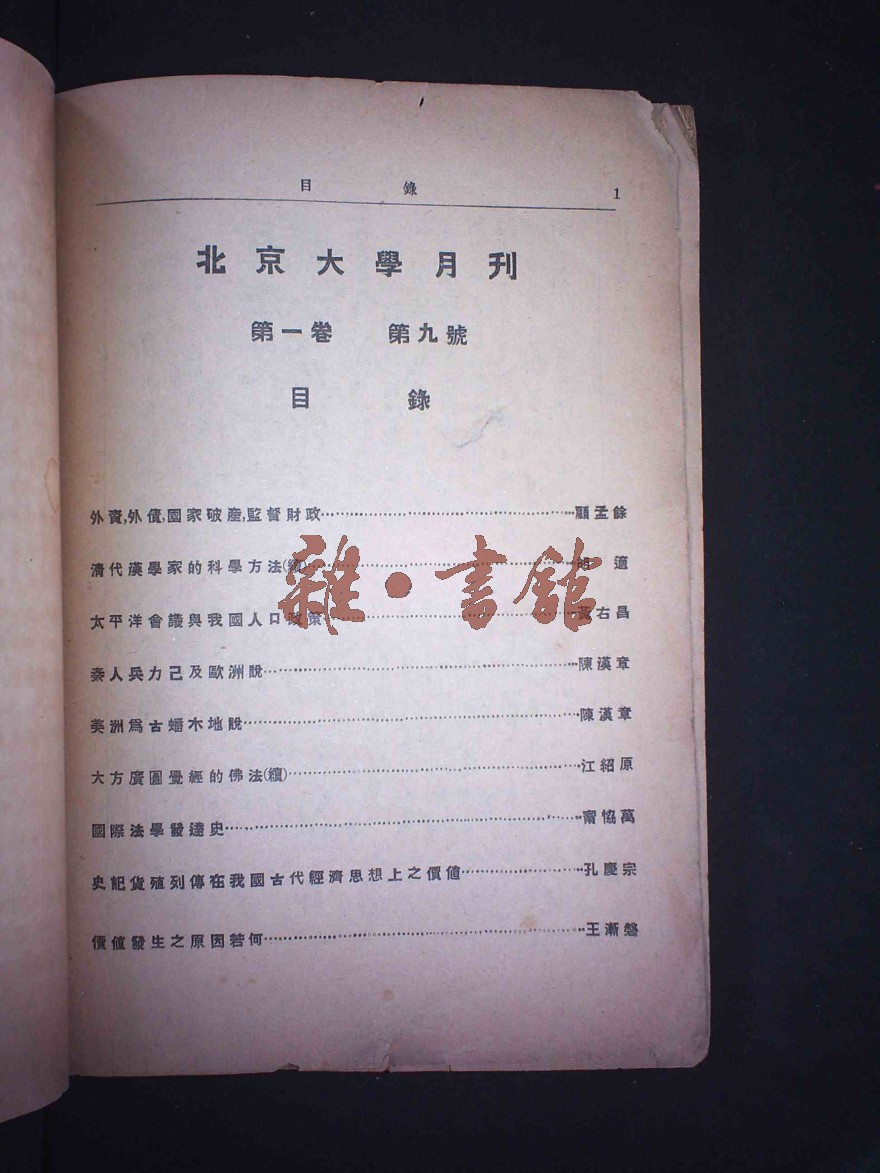 目　錄　1
北京大學月刊
第一卷　第九號
目　錄
外資,外債,國家破產,監督財政…………顧孟餘
清代漢學家的科學方法(續)…………胡　適
太平洋會議與我國人口政策…………黃右昌
秦人兵力已及歐洲說…………陳漢章
美洲爲古蟠木地說…………陳漢章
大方廣圓覺經的佛法(續)…………江紹原
國際法學發達史…………甯協萬
史記貨殖列傳在我國古代經濟思想上之價値…………孔慶宗
價値發生之原因若何…………王漸磐
雜·書館